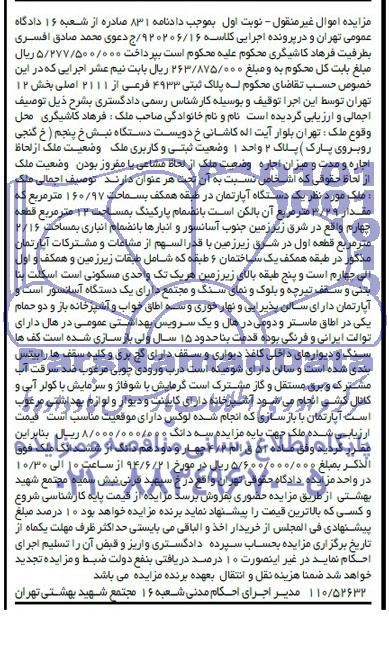 مزایده اموال غیرمنقول - نوبت اول   بموجب دادنامه ۸۳۱ صادره از شعبه ۱۶ دادگاه
عمومی تهران و در پرونده اجرایی کلاسه ۹۲۰۲۰۶/۱۶/ج دعوی محمد صادق افسری
بطرفیت فرهاد کاشیگری محکوم علیه محکوم است بپرداخت ۵/۲۷۷/۵۰۰/۰۰۰ ریال
مبلغ بابت کل محکوم به و مبلغ ۲۶۳/۸۷۵/۰۰۰ ریال بابت نیم عشر اجرایی که در این
خصوص حسب تقاضای محکوم له پلاک ثبتی ۴۹۳۳ فرعی از ۲۱۱۱ اصلی بخش ۱۲
تهران توسط این اجرا توقیف و بوسیله کارشناس رسمی دادگستری بشرح ذیل توصیف
اجمالی و ارزیابی گردیده است   نام و نام خانوادگی صاحب ملک : فرهاد کاشیگری   محل
وقوع ملک : تهران بلوار آیت اله کاشانی خ دویست دستگاه نبش خ پنجم ( خ گنجی
روبروی پارک ) پلاک ۲ واحد ۱ وضعیت ثبتی و کاربری ملک   وضعیت ملک از لحاظ
اجاره و مدت و میزان اجاره   وضعیت ملک از لحاظ مشاعی یا مفروز بودن   وضعیت ملک
از لحاظ حقوقی که اشخاص نسبت به آن تحت هر عنوان دارند   توصیف اجمالی ملک
: ملک مورد نظر یک دستگاه آپارتمان در طبقه همکف بمساحت ۱۶۰/۹۷ مترمربع که
مقدار ۳/۲۹ مترمربع آن بالکن است بانضمام پارکینگ بمساحت ۱۲ مترمربع قطعه
چهارم واقع در شرق زیرزمین جنوب آسانسور و انبارها بانضمام انباری بمساحت ۲/۱۶
مترمربع قطعه اول در شرق زیرزمین با قدرالسهم از مشاعات و مشترکات آپارتمان
مذکور در طبقه همکف یک ساختمان ۶ طبقه که شامل طبقات زیرزمین و همکف و اول
الی چهارم است و پنج طبقه بالای زیرزمین هریک تک واحدی مسکونی است اسکلت بنا
بتنی و سقف تیرچه و بلوک و نمای سنگ و مجتمع دارای یک دستگاه آسانسور است و
آپارتمان دارای سالن پذیرایی و نهارخوری و سه اطاق خواب و آشپزخانه باز و دو حمام
یکی در اطاق ماستر و دومی در هال و یک سرویس بهداشتی عمومی در هال دارای
توالت ایرانی و فرنگی بوده قدمت بنا حدود ۱۵ سال ولی بازسازی شده است کف ها
سنگ و دیوارهای داخلی کاغذ دیواری و سقف دارای گچ بری و کلیه سقف ها رابیتس
بندی شده است و سالن دارای شومینه است درب ورودی چوبی مرغوب ضد سرقت آب
مشترک و برق مستقل و گاز مشترک است گرمایش با شوفاژ و سرمایش با کولر آبی و
کانال کشی انجام می شود آشپزخانه دارای کابینت و دیوار و لوازم بهداشتی مرغوب
است آپارتمان با بازسازی که انجام شده لوکس دارای موقعیت مناسب است   قیمت
ارزیابی شده ملک جهت پایه مزایده سه دانگ ۸/۰۰۰/۰۰۰/۰۰۰ ریال   بنابراین
مقرر گردید وفق ماده ۵۱ ق ا م ۲/۸ چهار و دو دهم دانگ از ششدانگ ملک فوق
الذکر بمبلغ ۵/۶۰۰/۰۰۰/۰۰۰ ریال در مورخ ۹۴/۶/۲۱ از ساعت ۱۰ الی ۱۰/۳۰
در واحد مزایده دادگاه حقوقی تهران واقع در خ سپهبد قرنی نبش سمیه مجتمع شهید
بهشتی از طریق مزایده حضوری بفروش برسد مزایده از قیمت پایه کارشناسی شروع
و کسی که بالاترین قیمت را پیشنهاد نماید برنده مزایده خواهد بود ۱۰ درصد مبلغ
پیشنهادی فی المجلس از خریدار اخذ و الباقی می بایستی حداکثر ظرف مهلت یکماه از
تاریخ برگزاری مزایده بحساب سپرده   دادگستری واریز و قبض آن را تسلیم اجرای
احکام نماید در غیر اینصورت ۱۰ درصد دریافتی بنفع دولت ضبط و مزایده تجدید
خواهد شد ضمنا هزینه نقل و انتقال   بعهده برنده مزایده می باشد
۱۱۰/۵۲۶۳۲   مدیر اجرای احکام مدنی شعبه ۱۶ مجتمع شهید بهشتی تهران